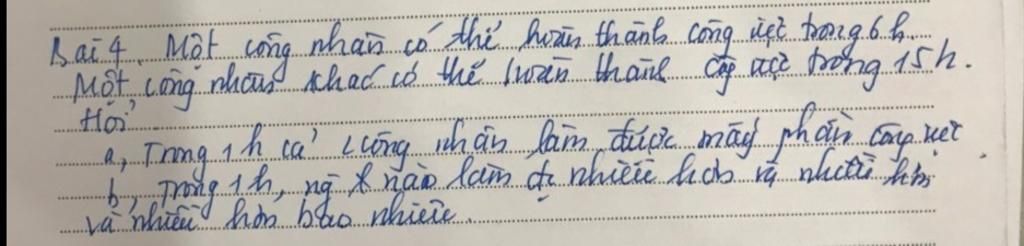 Bài 4. Một công nhân có thể hoàn thành công việc trong 6h.
Một công nhân khác có thể hoàn thành công việc trong 15h.
Hỏi
a, Trong 1h cả 2 công nhân làm được mấy phần công việc
b, Trong 1h, ng nào làm đc nhiều hơn và nhiều hơn
và nhiều hơn bao nhiêu.